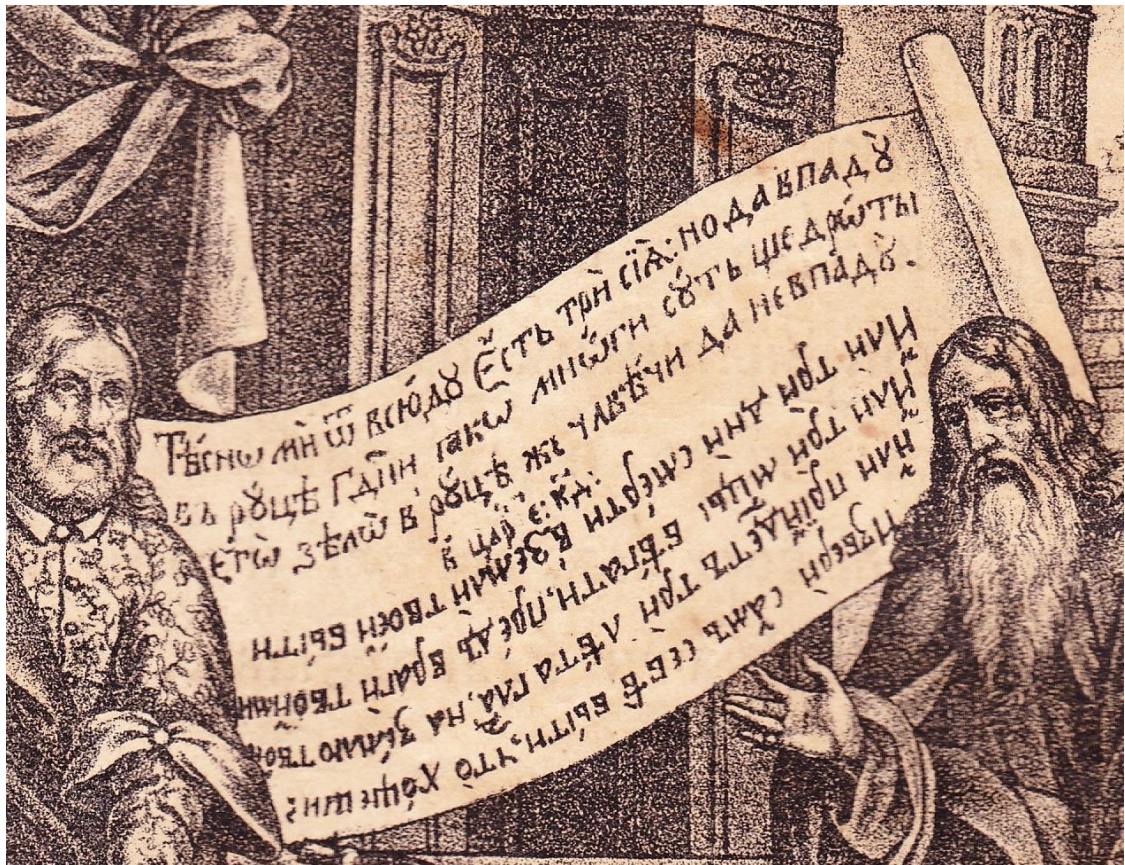 Тѣ́снѡ мѝ ѿ всю́дꙋ Є҆́сть трѝ сїѧ̑: но да впадꙋ̀
въ рꙋцѣ̀ Гд҇ни ꙗкѡ мнѡ́ги сꙋ́ть щедрѡ́ты
єгѡ̀ ѕѣлѡ̀ в рꙋцѣ̀ жъ члвѣ́чи да невпадꙋ̀.
Избери́ са́мъ себѣ̀ бы́ти, что̀ хо́щеши:
и҆лѝ прїи́детъ трѝ лѣ́та гла́, на зе́млю твою̀
и҆лѝ трѝ мцы бѣ́гати, пре́дъ врагѝ твои́ми
Или три дни сме́рти в земли твое́й бы́ти